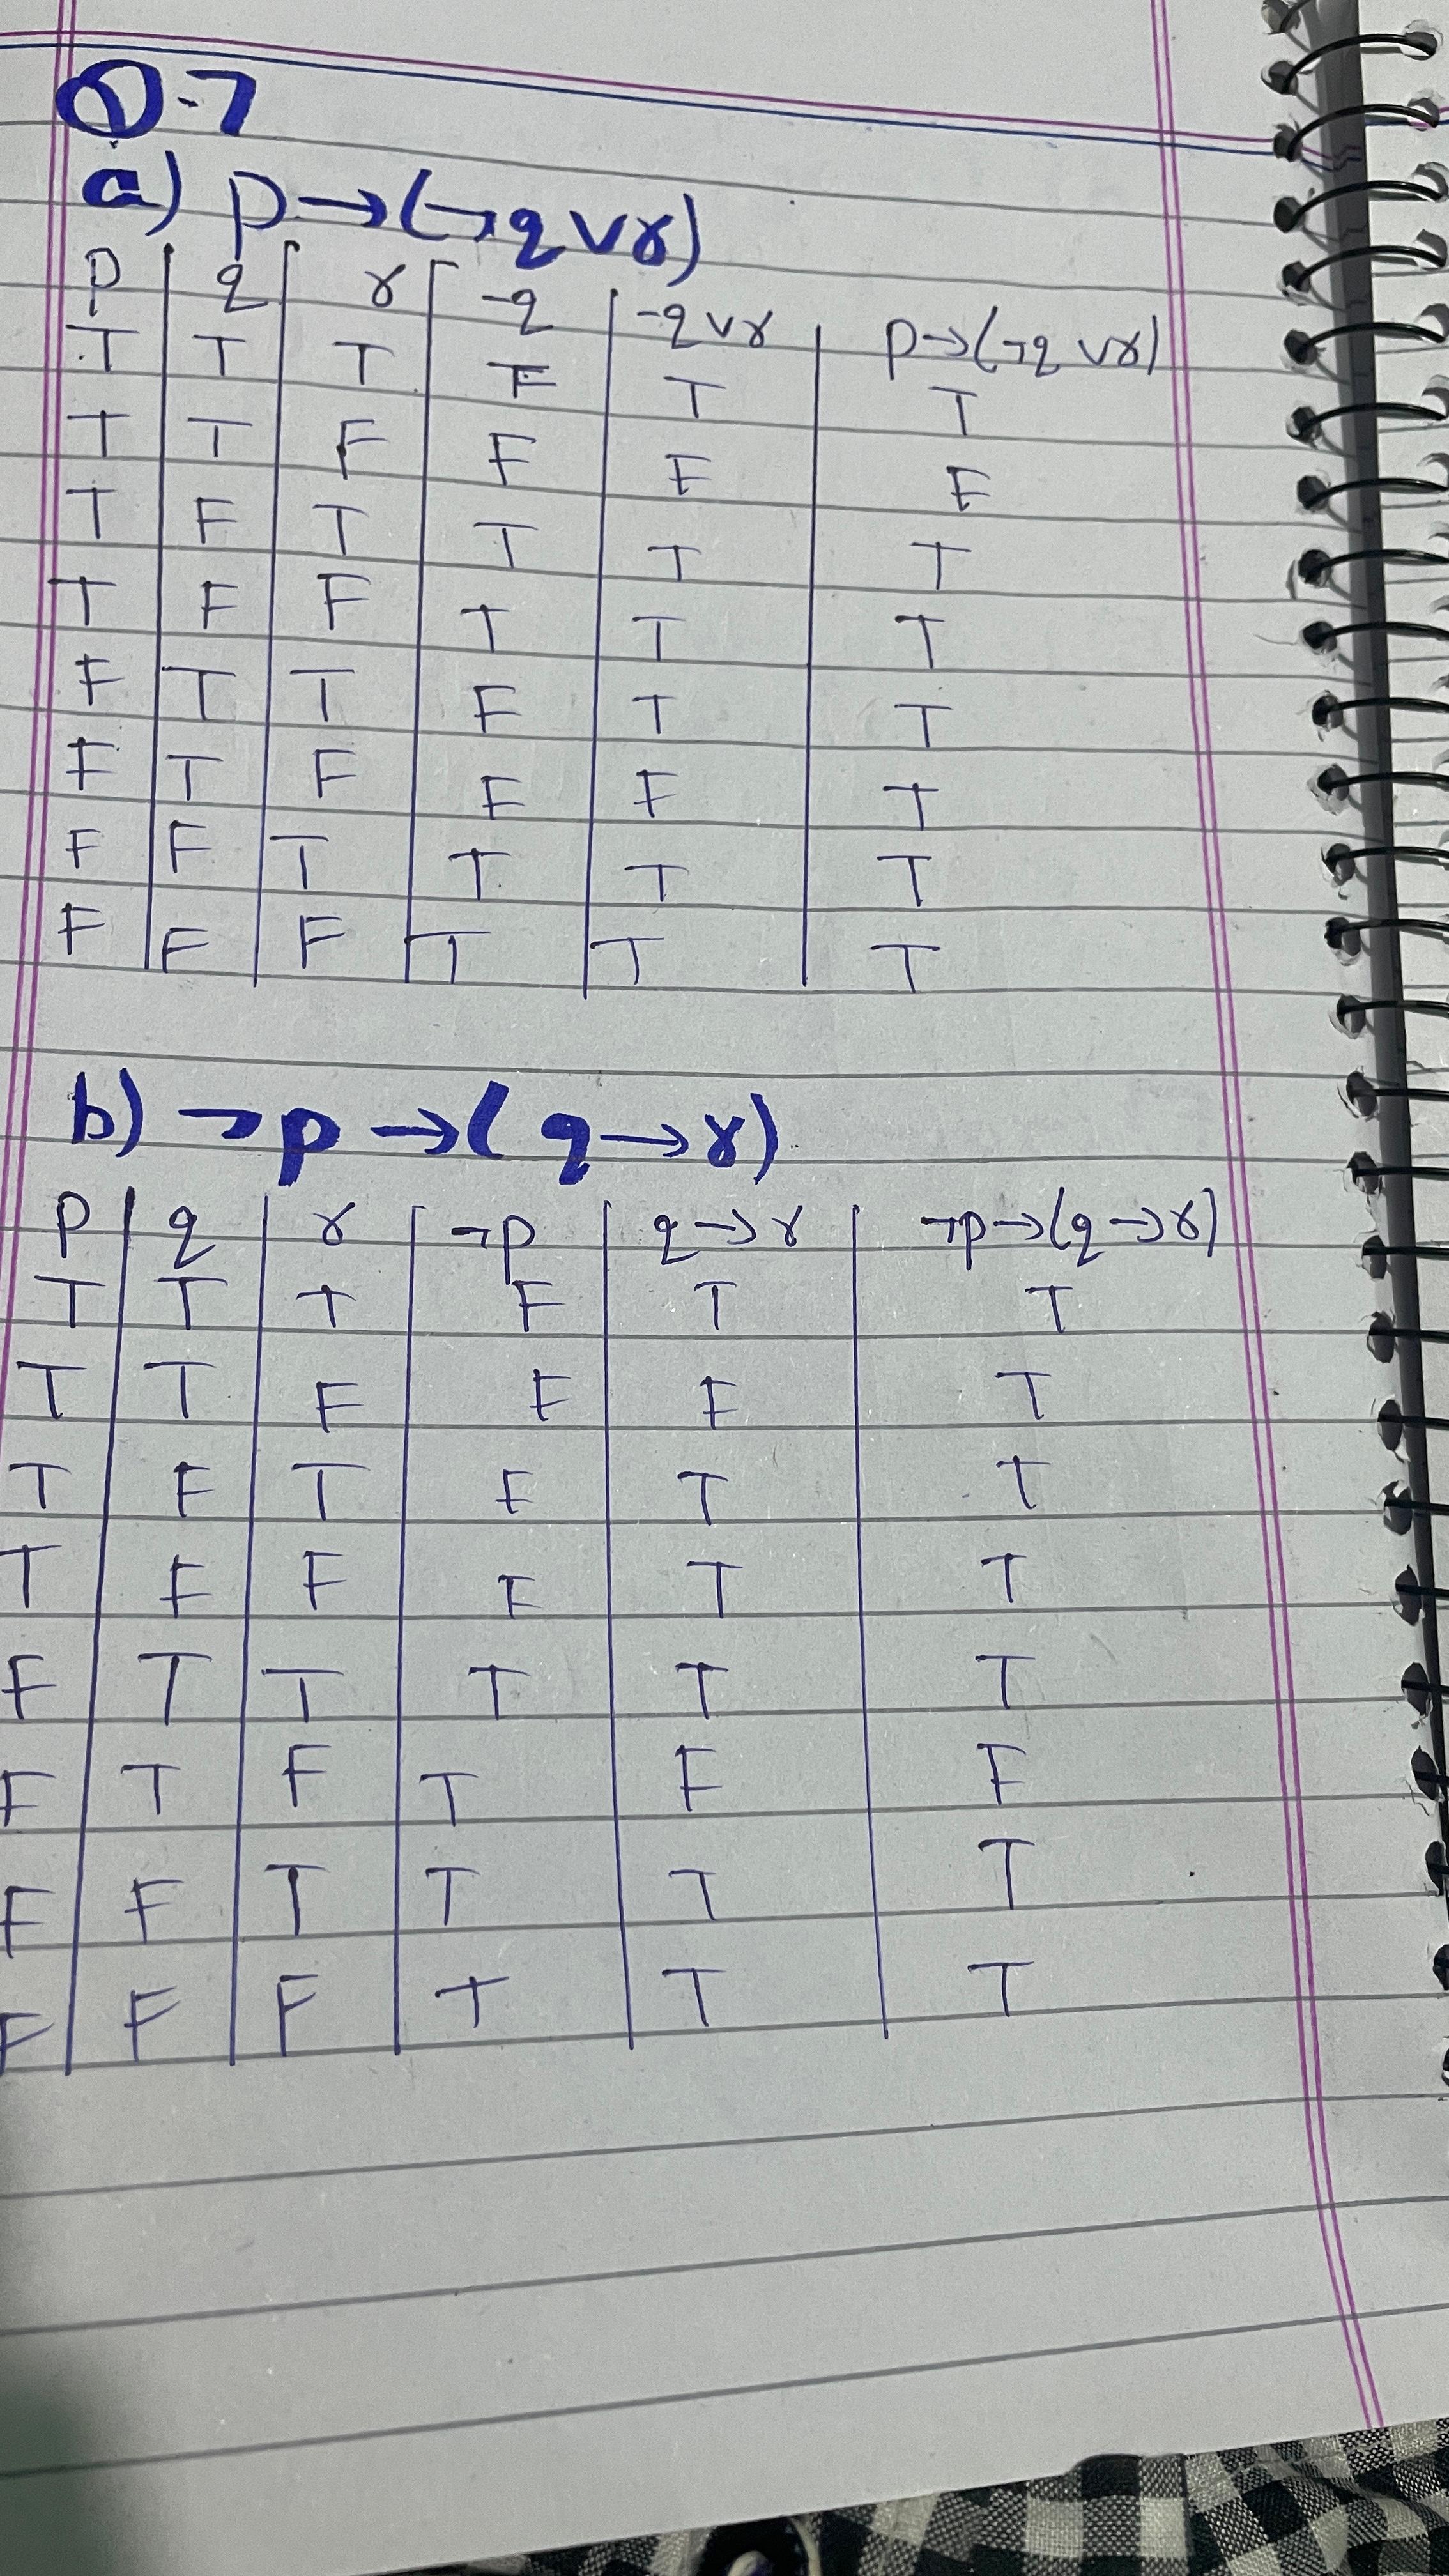 Q.7
a) p→(¬q∨r)
p | q | r | -q | -q∨r | p→(¬q∨r)
T | T | T | F | T | T
T | T | F | F | F | F
T | F | T | T | T | T
T | F | F | T | T | T
F | T | T | F | T | T
F | T | F | F | F | T
F | F | T | T | T | T
F | F | F | T | T | T
b) ¬p→(q→r)
p | q | r | ¬p | q→r | ¬p→(q→r)
T | T | T | F | T | T
T | T | F | F | F | T
T | F | T | F | T | T
T | F | F | F | T | T
F | T | T | T | T | T
F | T | F | T | F | F
F | F | T | T | T | T
F | F | F | T | T | T